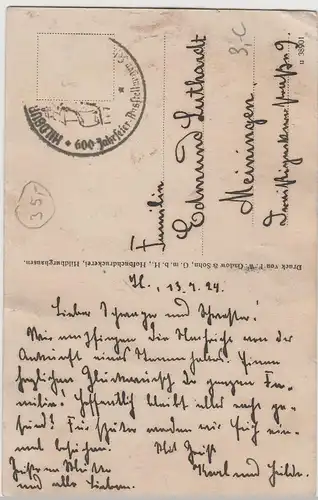 HILDBUR
600-Jahrfeier-Ausstellung
3,-C
35,-
Familie
Edmund Luthardt
Meiningen.
u 38901
Druck von F. W. Gadow & Sohn, G. m. b. H., Hofbuchdruckerei, Hildburghausen.
H., 13.7.24.
Lieber Schwager und Schwester!
Wir empfingen die Nachricht von der
Ankunft eines Stammhalters. Einen
herzlichen Glückwunsch der ganzen Fa-
milie! Hoffentlich bleibt alles recht ge-
sund! Für später werden wir Euch ein-
mal besuchen. Mit Gruß
Grüße an Mutter Karl und Hilde.
und alle Lieben.